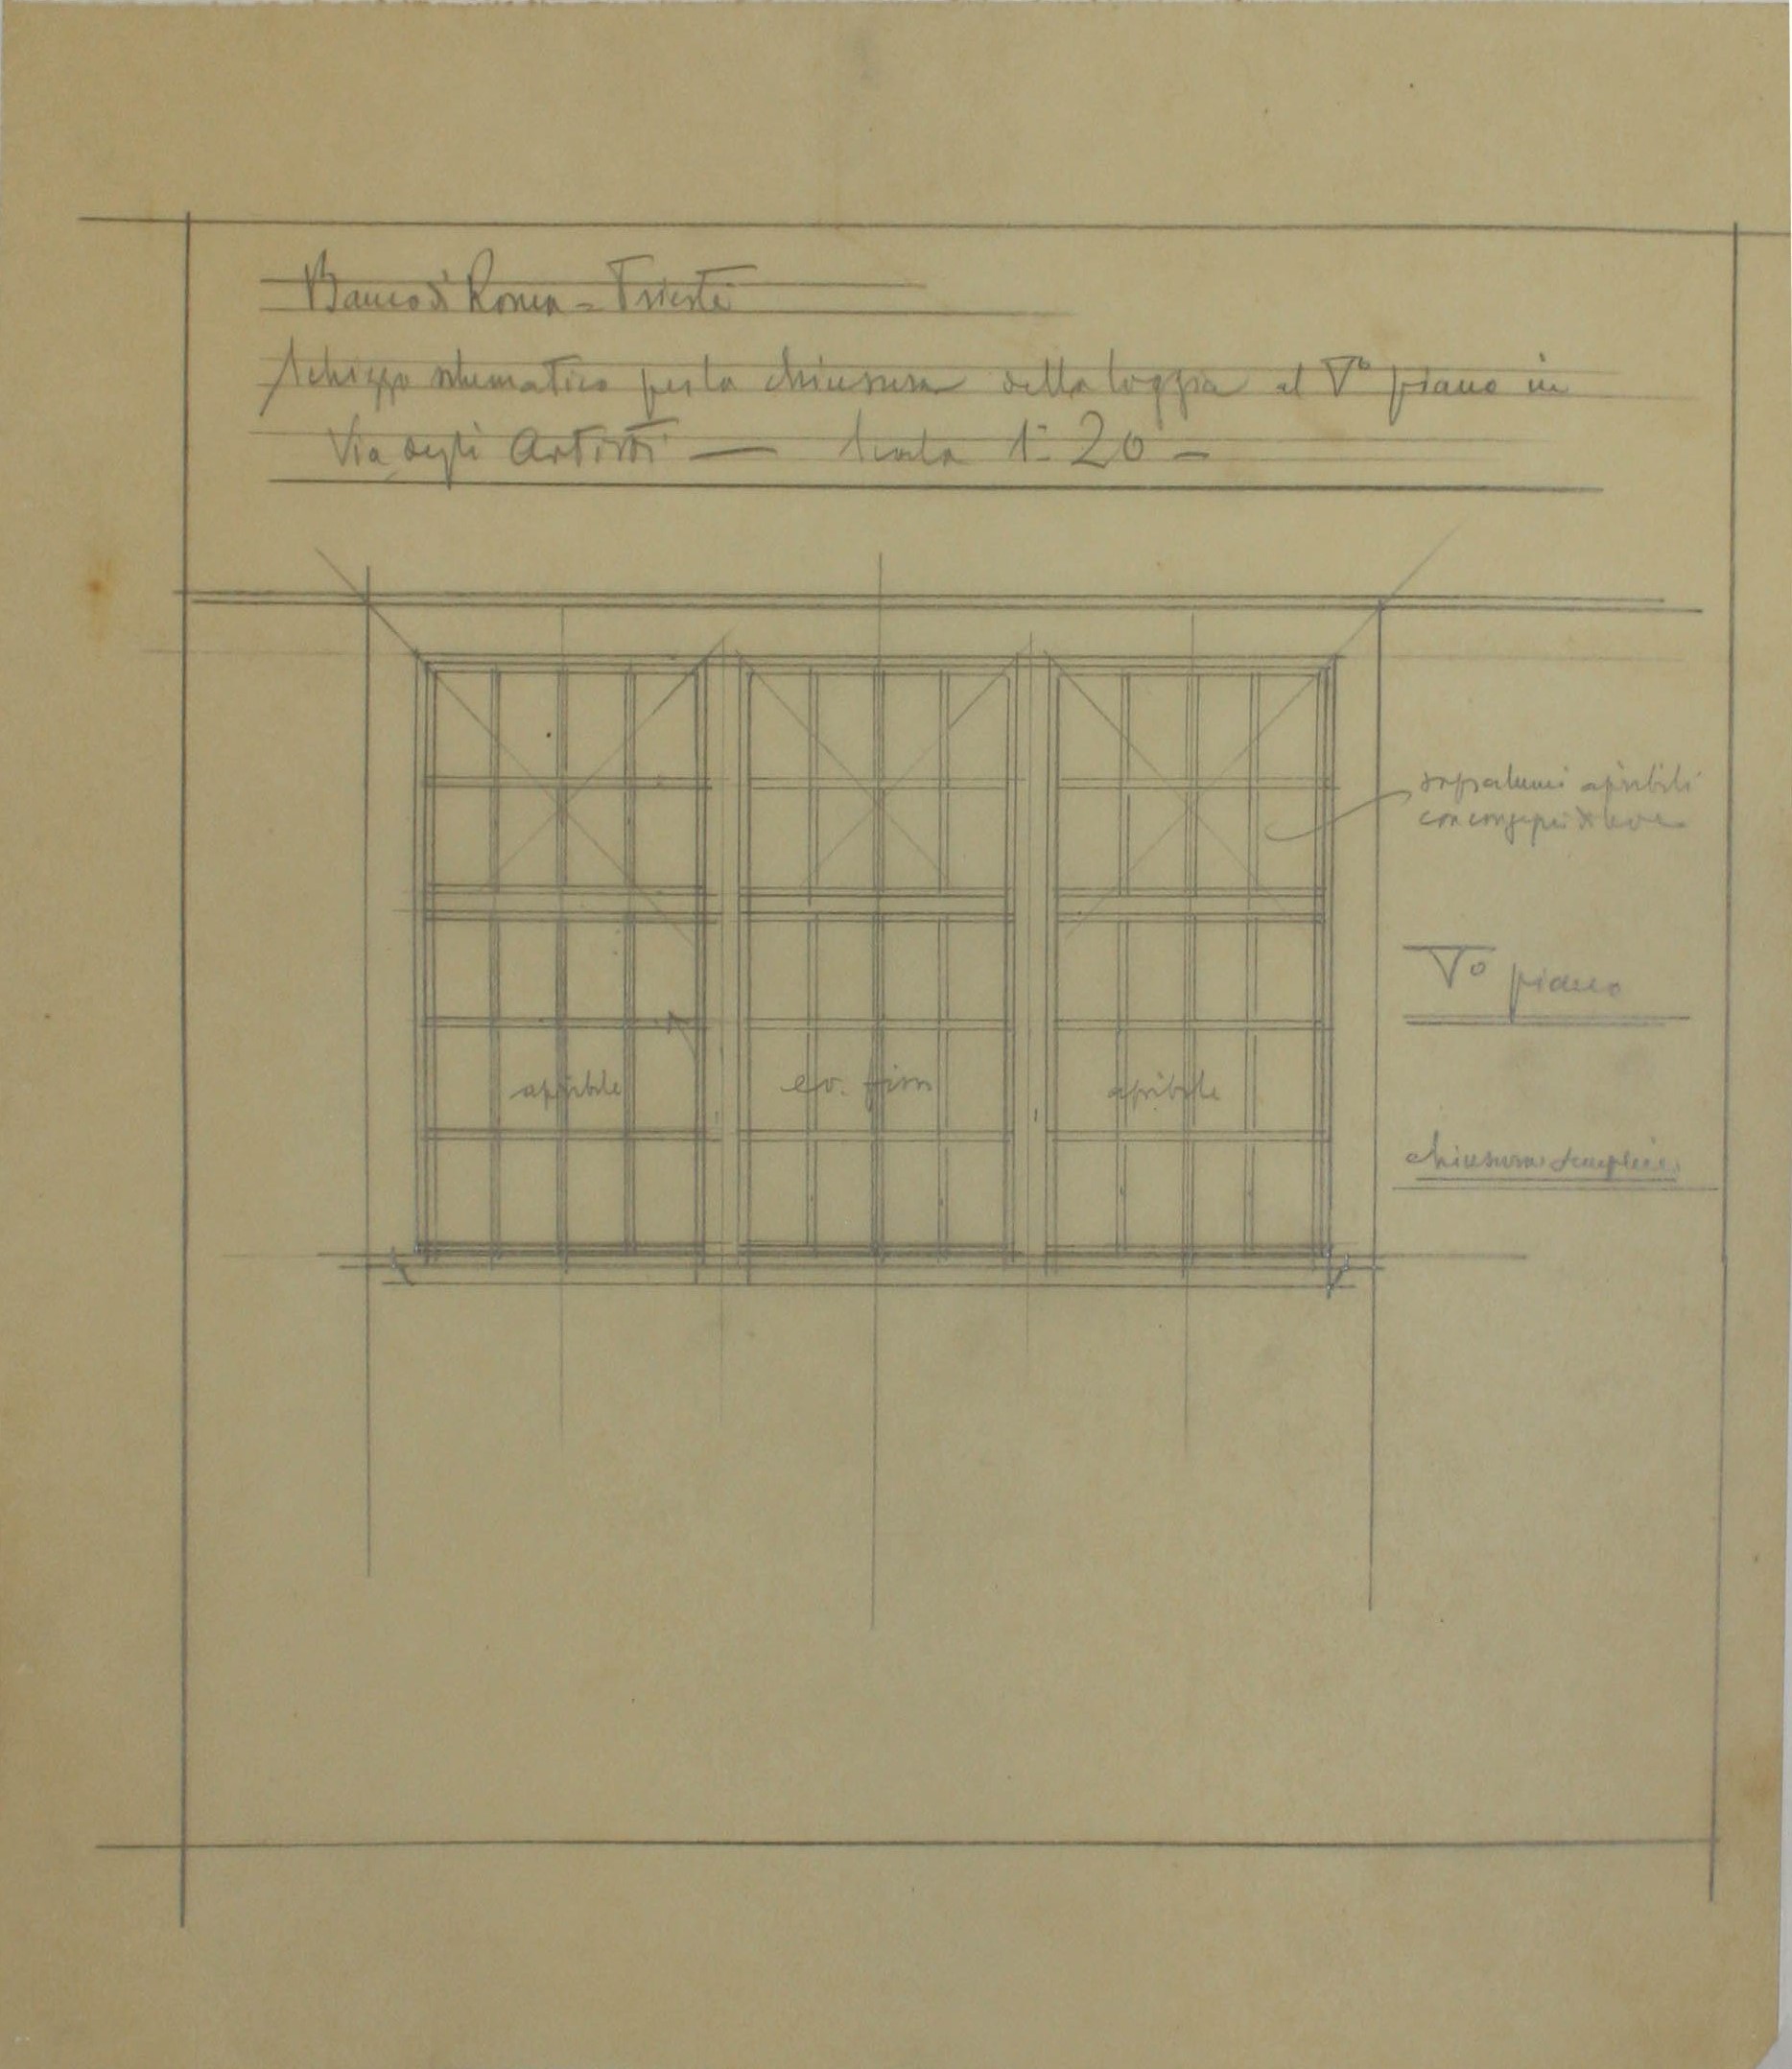 Banco di Roma - Trieste
Schizzo schematico per la chiusura della loggia al V° piano in
Via degli Artisti — Scala 1:20 -
sopralumi apribili
con congegni di leva
V° piano
apribile ev. fisso apribile
chiusura semplice